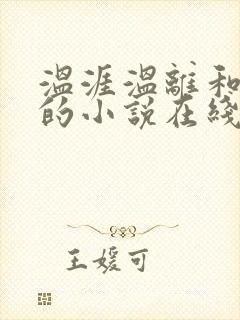 温涯温離和
的小説在綫
王媛可